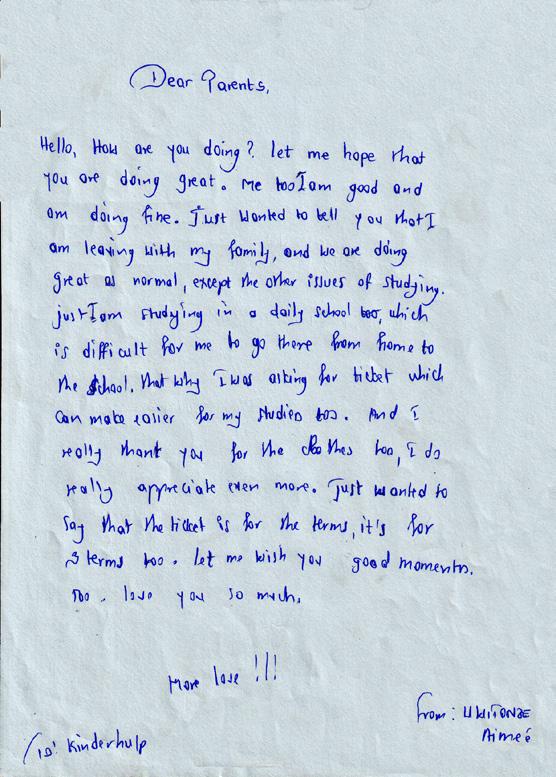 Dear Parents,
Hello, How are you doing? let me hope that
you are doing great. Me too I am good and
am doing fine. Just wanted to tell you that I
am leaving with my family, and we are doing
great as normal, except the other issues of studying.
just I am studying in a daily school too, which
is difficult for me to go there from home to
the school. that why I was asking for ticket which
can make easier for my studies too. And I
really thank you for the clothes too, I do
really appreciate even more. Just wanted to
say that the ticket is for the terms, it's for
3 terms too. let me wish you good moments.
too. love you so much.
More love !!!
From: UWITONZE
Aimeé
Kinderhulp